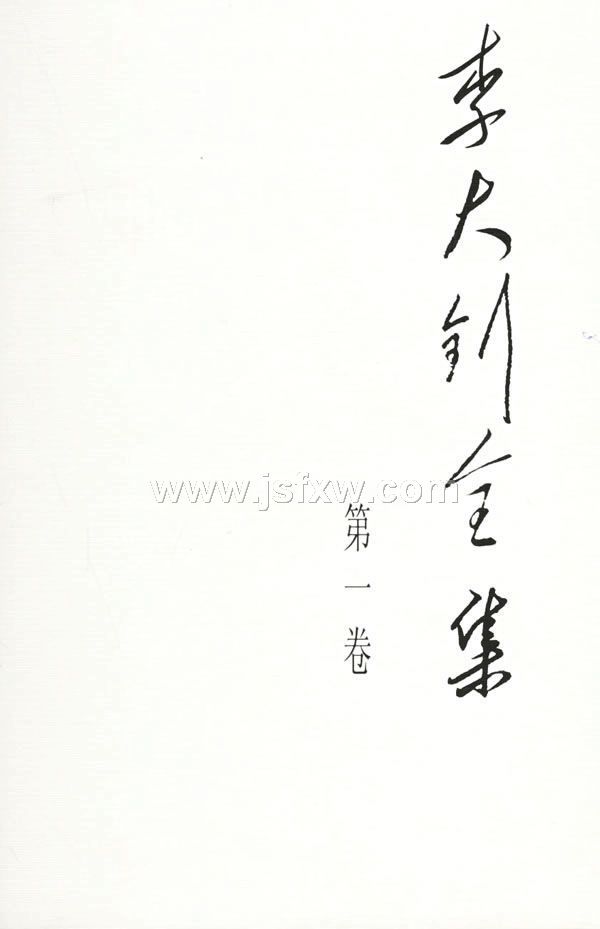 李大钊全集
第一卷
www.jsfxw.com